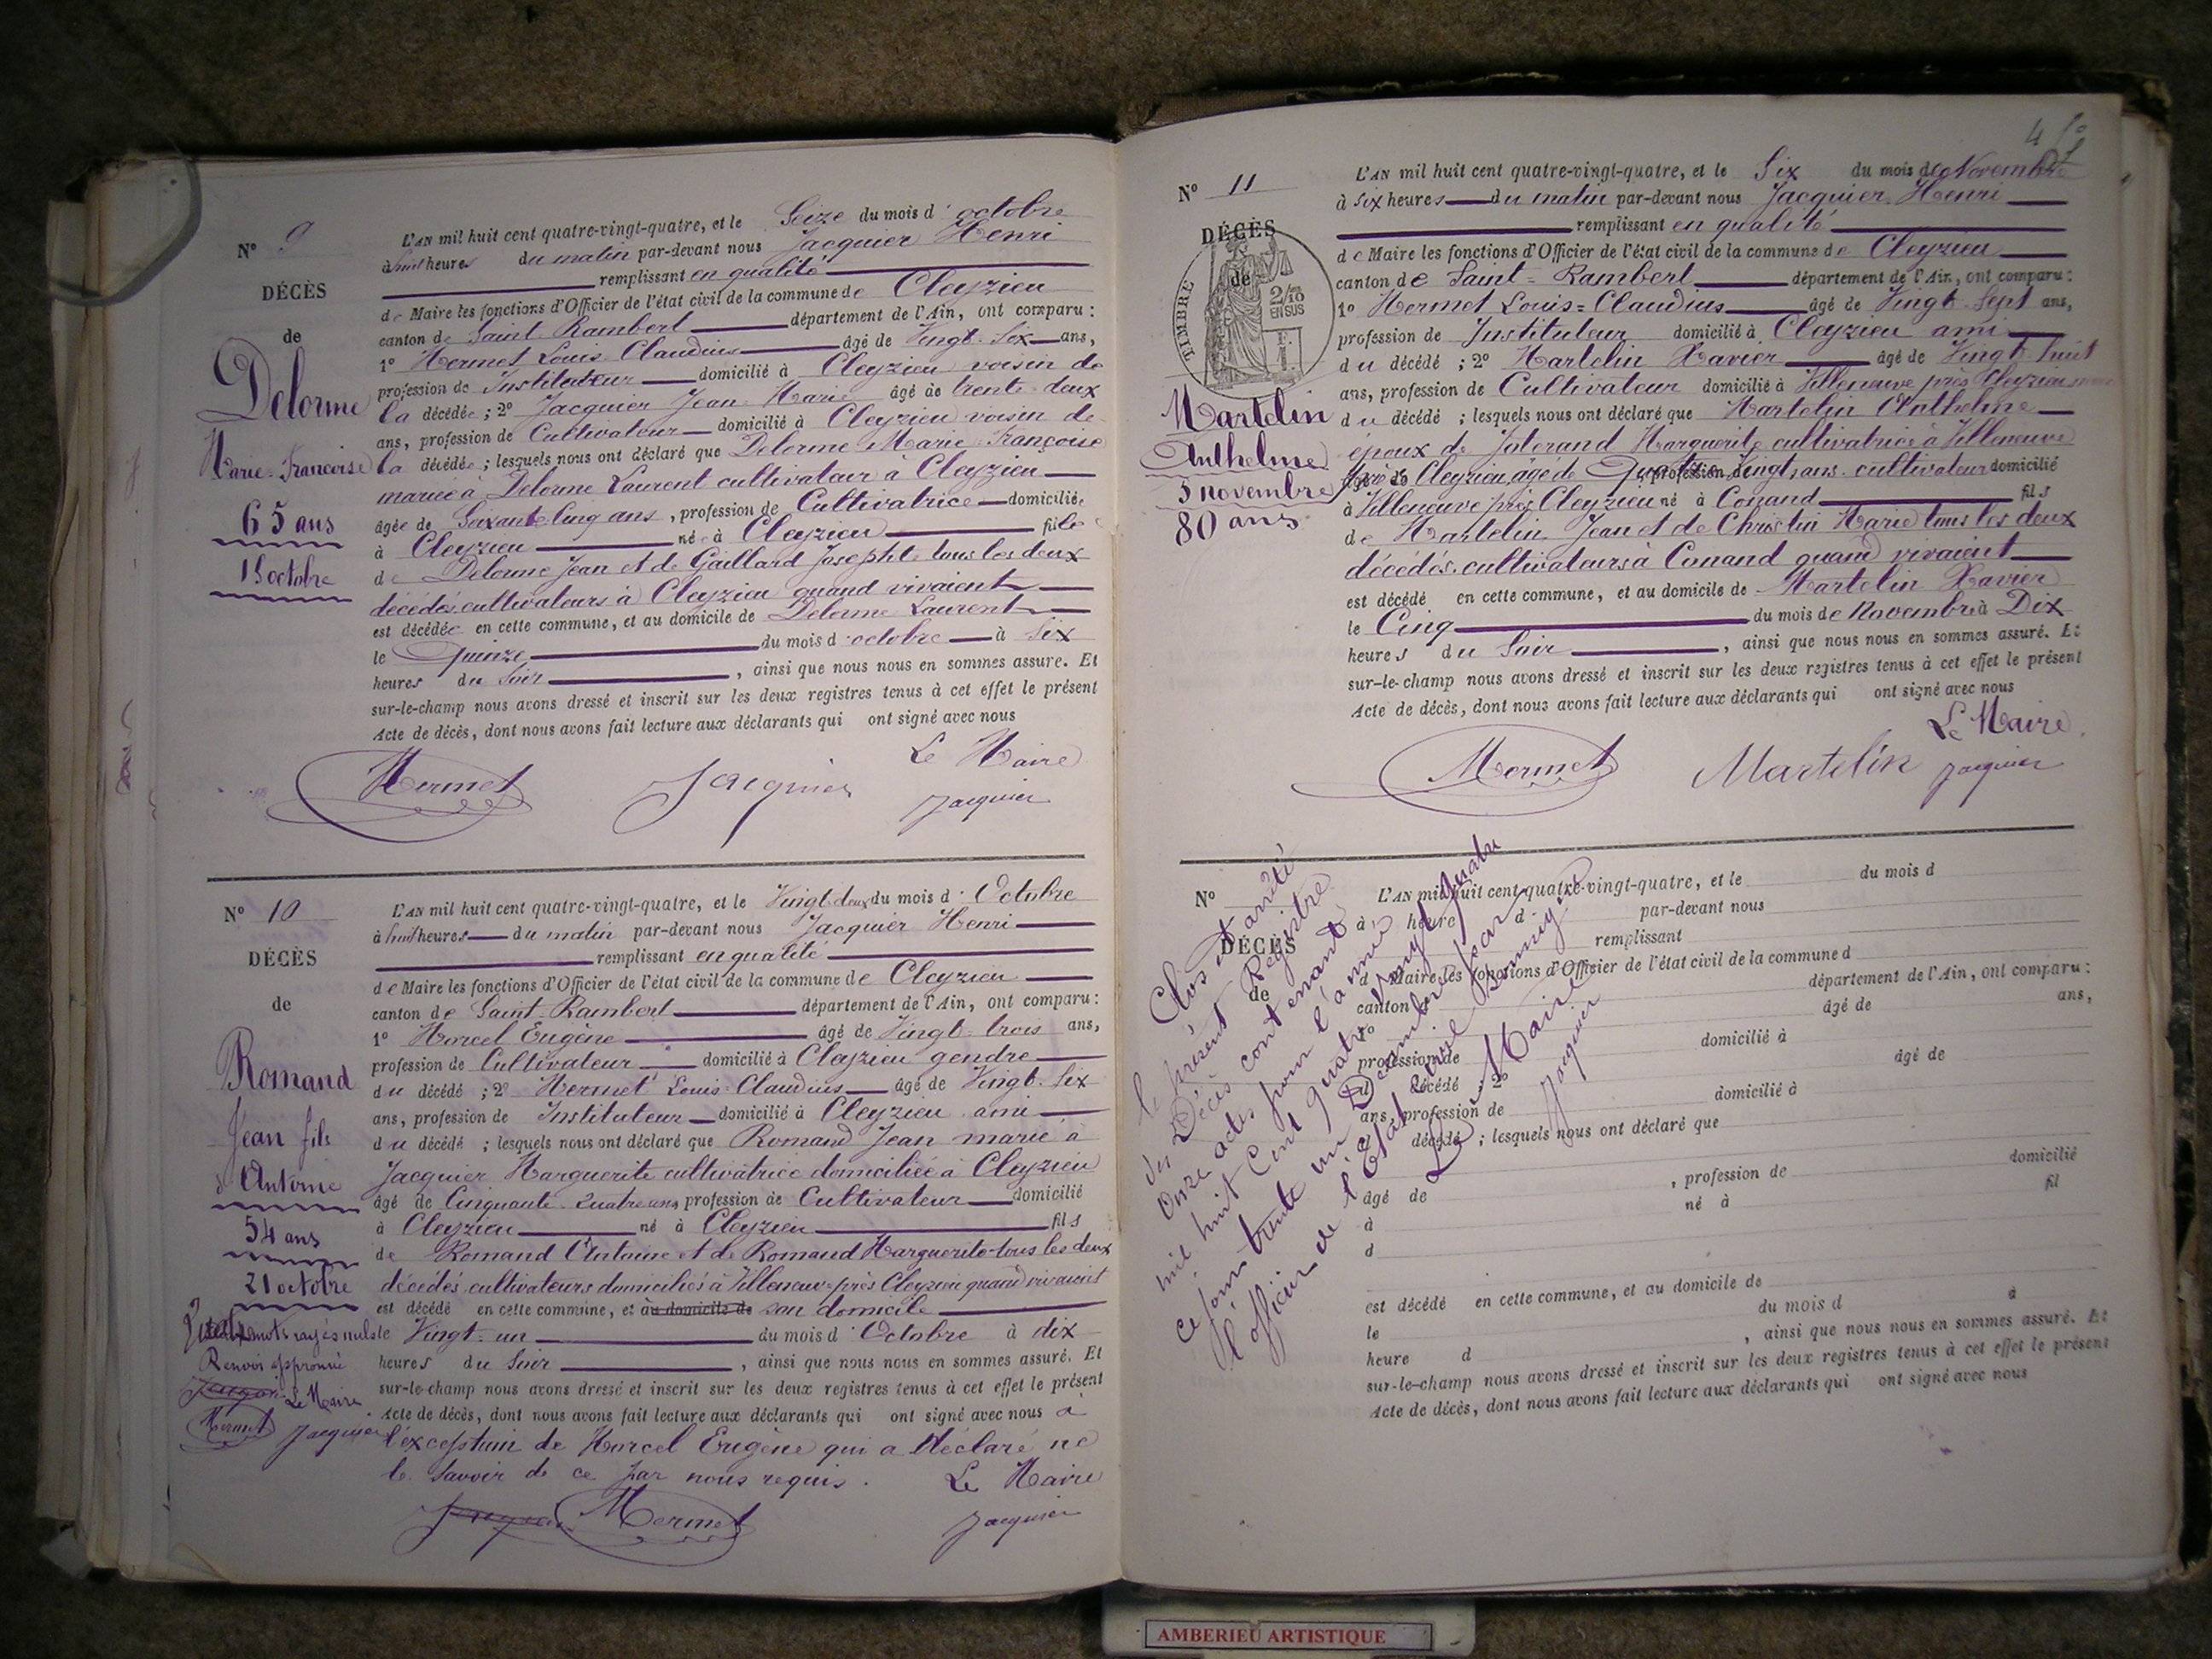 N° 9
DÉCÈS
de
Delorme
Marie-Françoise
65 ans
15 octobre
L'AN mil huit cent quatre-vingt-quatre, et le Seize du mois d'octobre
à huit heures du matin par-devant nous Jacquier Henri
remplissant en qualité
de Maire les fonctions d'Officier de l'état civil de la commune de Cleyzieu
canton de Saint-Rambert département de l'Ain, ont comparu :
1° Mermet Louis Claudius âgé de Vingt-Six ans,
profession de Instituteur domicilié à Cleyzieu voisin de
la décédée ; 2° Jacquier Jean-Marie âgé de trente-deux
ans, profession de Cultivateur domicilié à Cleyzieu voisin de
la décédée ; lesquels nous ont déclaré que Delorme Marie Françoise
mariée à Delorme Laurent cultivateur à Cleyzieu
âgée de Soixante cinq ans, profession de Cultivatrice domiciliée
à Cleyzieu née à Cleyzieu fille
de Delorme Jean et de Gaillard Josephte tous les deux
décédés cultivateurs à Cleyzieu quand vivaient
est décédée en cette commune, et au domicile de Delorme Laurent
le Quinze du mois d'octobre à Six
heures du Soir, ainsi que nous nous en sommes assuré. Et
sur-le-champ nous avons dressé et inscrit sur les deux registres tenus à cet effet le présent
Acte de décès, dont nous avons fait lecture aux déclarants qui ont signé avec nous
Le Maire
Mermet Jacquier Jacquier
N° 10
DÉCÈS
de
Romand
Jean fils
d'Antoine
54 ans
21 octobre
mots rayés nuls
Renvoi approuvé
Le Maire
Mermet Jacquier
L'AN mil huit cent quatre-vingt-quatre, et le Vingt deux du mois d'Octobre
à huit heures du matin par-devant nous Jacquier Henri
remplissant en qualité
de Maire les fonctions d'Officier de l'état civil de la commune de Cleyzieu
canton de Saint-Rambert département de l'Ain, ont comparu :
1° Morcel Eugène âgé de Vingt-trois ans,
profession de Cultivateur domicilié à Cleyzieu gendre
du décédé ; 2° Mermet Louis-Claudius âgé de Vingt-Six
ans, profession de Instituteur domicilié à Cleyzieu ami
du décédé ; lesquels nous ont déclaré que Romand Jean marié à
Jacquier Marguerite cultivatrice domiciliée à Cleyzieu
âgé de Cinquante-Quatre ans, profession de Cultivateur domicilié
à Cleyzieu né à Cleyzieu fils
de Romand Antoine et de Romand Marguerite tous les deux
décédés cultivateurs domiciliés à Villeneuve près Cleyzieu quand vivaient
est décédé en cette commune, et au domicile de son domicile
le Vingt-un du mois d'Octobre à dix
heures du Soir, ainsi que nous nous en sommes assuré. Et
sur-le-champ nous avons dressé et inscrit sur les deux registres tenus à cet effet le présent
Acte de décès, dont nous avons fait lecture aux déclarants qui ont signé avec nous à
l'exception de Morcel Eugène qui a déclaré ne
le savoir de ce par nous requis. Le Maire
Mermet Jacquier
N° 11
DÉCÈS
de
TIMBRE
2/10
EN SUS
Martelin
Anthelme
5 novembre
80 ans
L'AN mil huit cent quatre-vingt-quatre, et le Six du mois de Novembre
à Six heures du matin par-devant nous Jacquier Henri
remplissant en qualité
de Maire les fonctions d'Officier de l'état civil de la commune de Cleyzieu
canton de Saint-Rambert département de l'Ain, ont comparu :
1° Mermet Louis-Claudius âgé de Vingt-Sept ans,
profession de Instituteur domicilié à Cleyzieu ami
du décédé ; 2° Martelin Xavier âgé de Vingt huit
ans, profession de Cultivateur domicilié à Villeneuve près Cleyzieu
du décédé ; lesquels nous ont déclaré que Martelin Anthelme
époux de Marguerite cultivatrice à Villeneuve
près Cleyzieu, âgé de Quatre Vingts ans, cultivateur domicilié
à Villeneuve près Cleyzieu né à Conand fils
de Martelin Jean et de Christin Marie tous les deux
décédés cultivateurs à Conand quand vivaient
est décédé en cette commune, et au domicile de Martelin Xavier
le Cinq du mois de Novembre à Dix
heures du Soir, ainsi que nous nous en sommes assuré. Et
sur-le-champ nous avons dressé et inscrit sur les deux registres tenus à cet effet le présent
Acte de décès, dont nous avons fait lecture aux déclarants qui ont signé avec nous
Le Maire
Mermet Martelin Jacquier
N°
DÉCÈS
de
L'AN mil huit cent quatre-vingt-quatre, et le du mois d
à heure d par-devant nous
remplissant
d Maire les fonctions d'Officier de l'état civil de la commune d
canton département de l'Ain, ont comparu :
1° âgé de ans,
profession de domicilié à
du décédé ; 2° âgé de
ans, profession de domicilié à
d décédé ; lesquels nous ont déclaré que
âgé de , profession de domicilié
à né à fil
d
est décédé en cette commune, et au domicile de
le du mois d à
heure d , ainsi que nous nous en sommes assuré. Et
sur-le-champ nous avons dressé et inscrit sur les deux registres tenus à cet effet le présent
Acte de décès, dont nous avons fait lecture aux déclarants qui ont signé avec nous
Clos et arrêté
le présent Registre
des Décès contenant
Onze actes pour l'année
mil huit Cent quatre Vingt quatre
ce jour trente un Décembre par
l'officier de l'Etat civil soussigné
Le Maire
Jacquier
AMBERIEU ARTISTIQUE